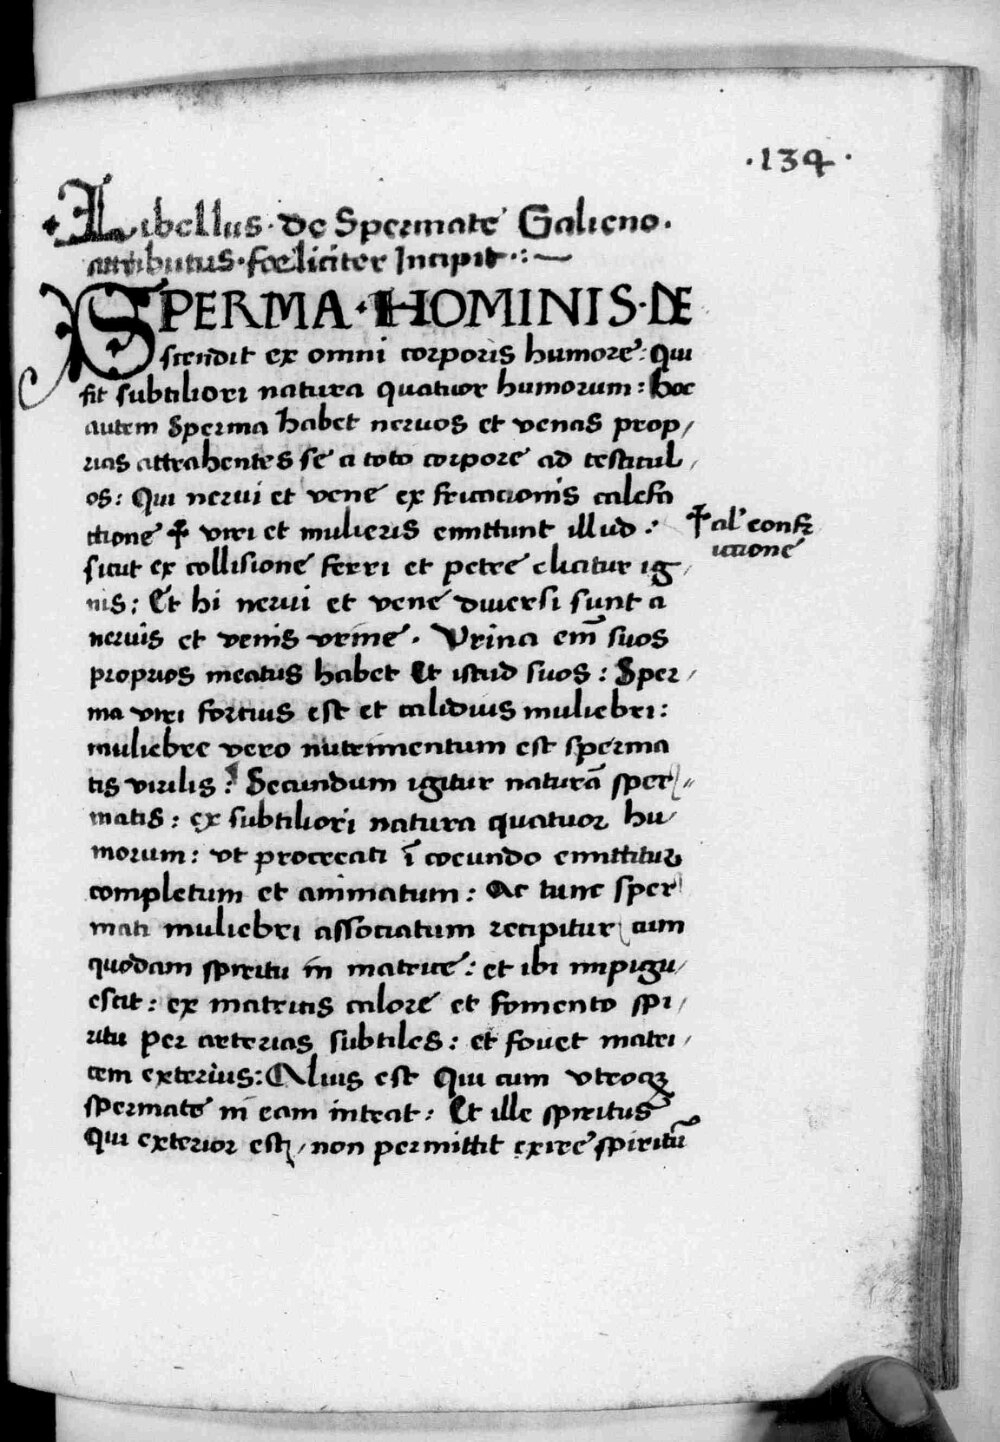 ·134·
Libellus · de Spermate Galieno ·
attributus · foeliciter Incipit ·:~
SPERMA · HOMINIS · DE
scendit ex omni corporis humore: Qui
fit subtiliori natura quatuor humorum: Hoc
autem Sperma habet nervos et venas prop/
rias attrahentes se a toto corpore ad testicul/
os: Qui nervi et vene ex fricacionis calefa
ctione ☨ viri et mulieris emittunt illud:
☨ al' confr
ictione
sicut ex collisione ferri et petre elicitur ig/
nis: Et hi nervi et vene diversi sunt a
nervis et venis vrine. Vrina em̄ suos
proprios meatus habet Et istud suos: Sper/
ma viri fortius est et calidius muliebri:
muliebre vero nutrimentum est sperma
tis virilis: Secundum igitur naturā sper//
matis: ex subtiliori natura quatuor hu/
morum: vt procreati ī coeundo emittitur
completum et animatum: Ac tunc sper
mati muliebri associatum recipitur cum
quodam spiritu in matrice: et ibi impigu/
escit: ex matricis calore et fomento spi/
ritu per arterias subtiles: et fovet matri/
cem exterius: Alius est Qui cum vtroqꝫ
spermate in eam intrat: Et ille spiritus
Qui exterior est, non permittit exire spiritū